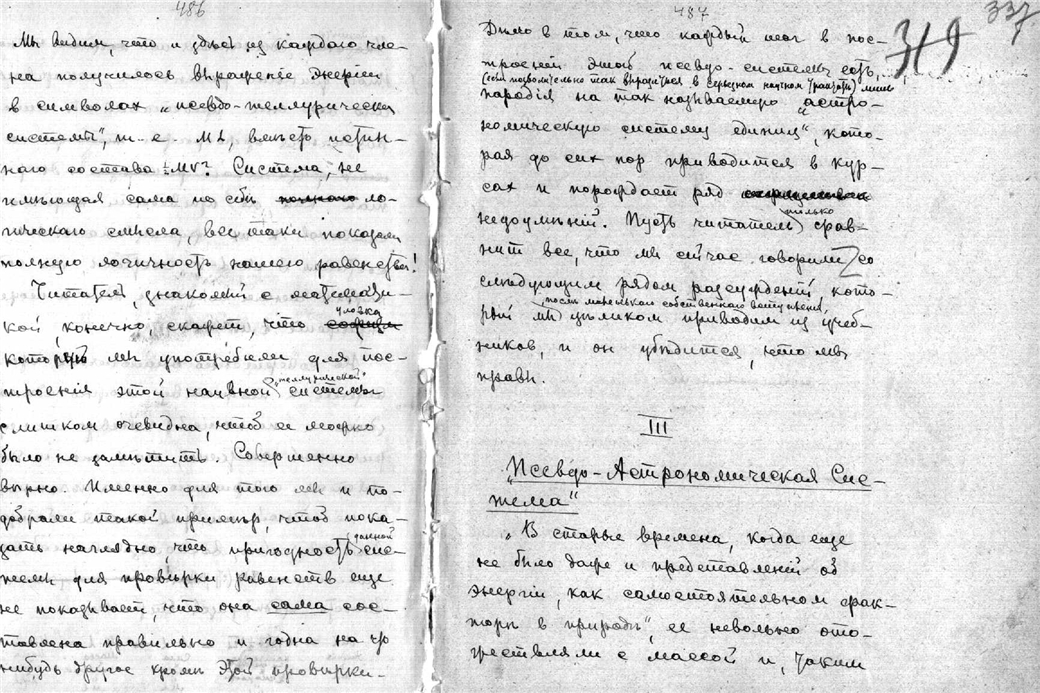 486
Мы видим, что и здѣсь из каждаго чле-
на получилось выраженіе энергіи
в символах „псевдо-теллурической
системы", т. е. ML, вмѣсто истин-
наго состава ½MV². Система, не
имѣющая сама по себѣ ло-
гическаго смысла, все таки показала
полную логичность нашего равенства!
Читатель, знакомый с математи-
кой, конечно, скажет, что уловка
которую мы употребили для пос-
троенія этой наивной „теллурической" системы
слишком очевидна, чтоб ее можно
было не замѣтить. Совершенно
вѣрно. Именно для того мы и по-
добрали такой примѣр, чтоб пока-
зать наглядно, что пригодность данной сис-
темы для провѣрки равенств еще
не показывает, что она сама сос-
тавлена правильно и годна на что
нибудь другое кромѣ этой провѣрки.-
487
337
319
Дѣло в том, что каждый шаг в пос-
троеніи этой псевдо-системы есть,
(если позволительно так выразиться в серьезном научном трактатѣ) лишь
пародія на так называемую „астро-
номическую систему единиц", кото-
рая до сих пор приводится в кур-
сах и порождает ряд
недоумѣній. Пусть читатель только срав-
нит все, что мы сейчас говорим со
слѣдующим рядом разсужденій кото-
рый послѣ маленькаго собственнаго вступленія,
мы цѣликом приводим из учеб-
ников, и он убѣдится, что мы
правы.
III
„Псевдо-Астрономическая Сис-
тема"
„В старые времена, когда еще
не было даже и представленій об
энергіи, как самостоятельном фак-
торѣ в природѣ", ее невольно ото-
жествляли с массой и, таким